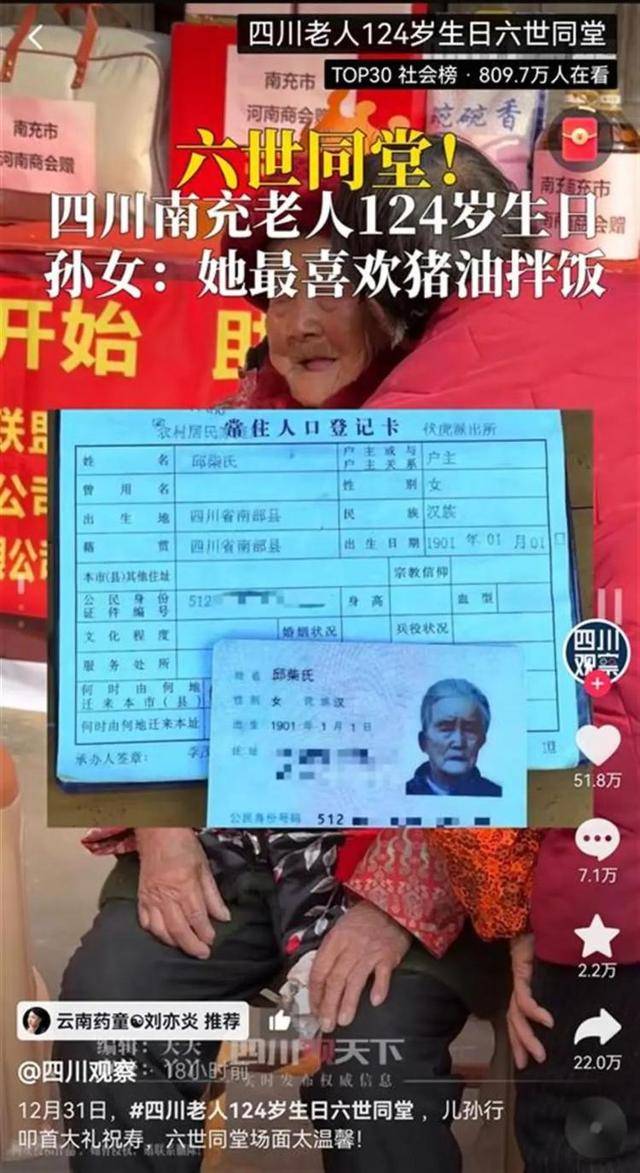 四川老人124岁生日六世同堂
TOP30 社会榜 · 809.7万人在看
南充市
河南商会赠
南充市
河南商会赠
六世同堂！
四川南充老人124岁生日
孙女：她最喜欢猪油拌饭
开始
常住人口登记卡
伏虎派出所
姓名 邱柴氏 户主或与户主关系 户主
曾用名 性别 女
出生地 四川省南部县 民族 汉族
籍贯 四川省南部县 出生日期 1901年01月01日
本市(县)其他住址 宗教信仰
公民身份证件编号 512 身高 血型
文化程度 婚姻状况 兵役状况
服务处所
何时由何地迁来本市(县)
何时由何地迁来本址
承办人签章：
姓名 邱柴氏
性别 女 民族 汉
出生 1901年1月1日
住址
公民身份号码 512
四川
观察
51.8万
7.1万
2.2万
22.0万
云南药童☯刘亦炎 推荐
四川观天下
@四川观察 · 18小时前
12月31日，#四川老人124岁生日六世同堂 ，儿孙行
叩首大礼祝寿，六世同堂场面太温馨！